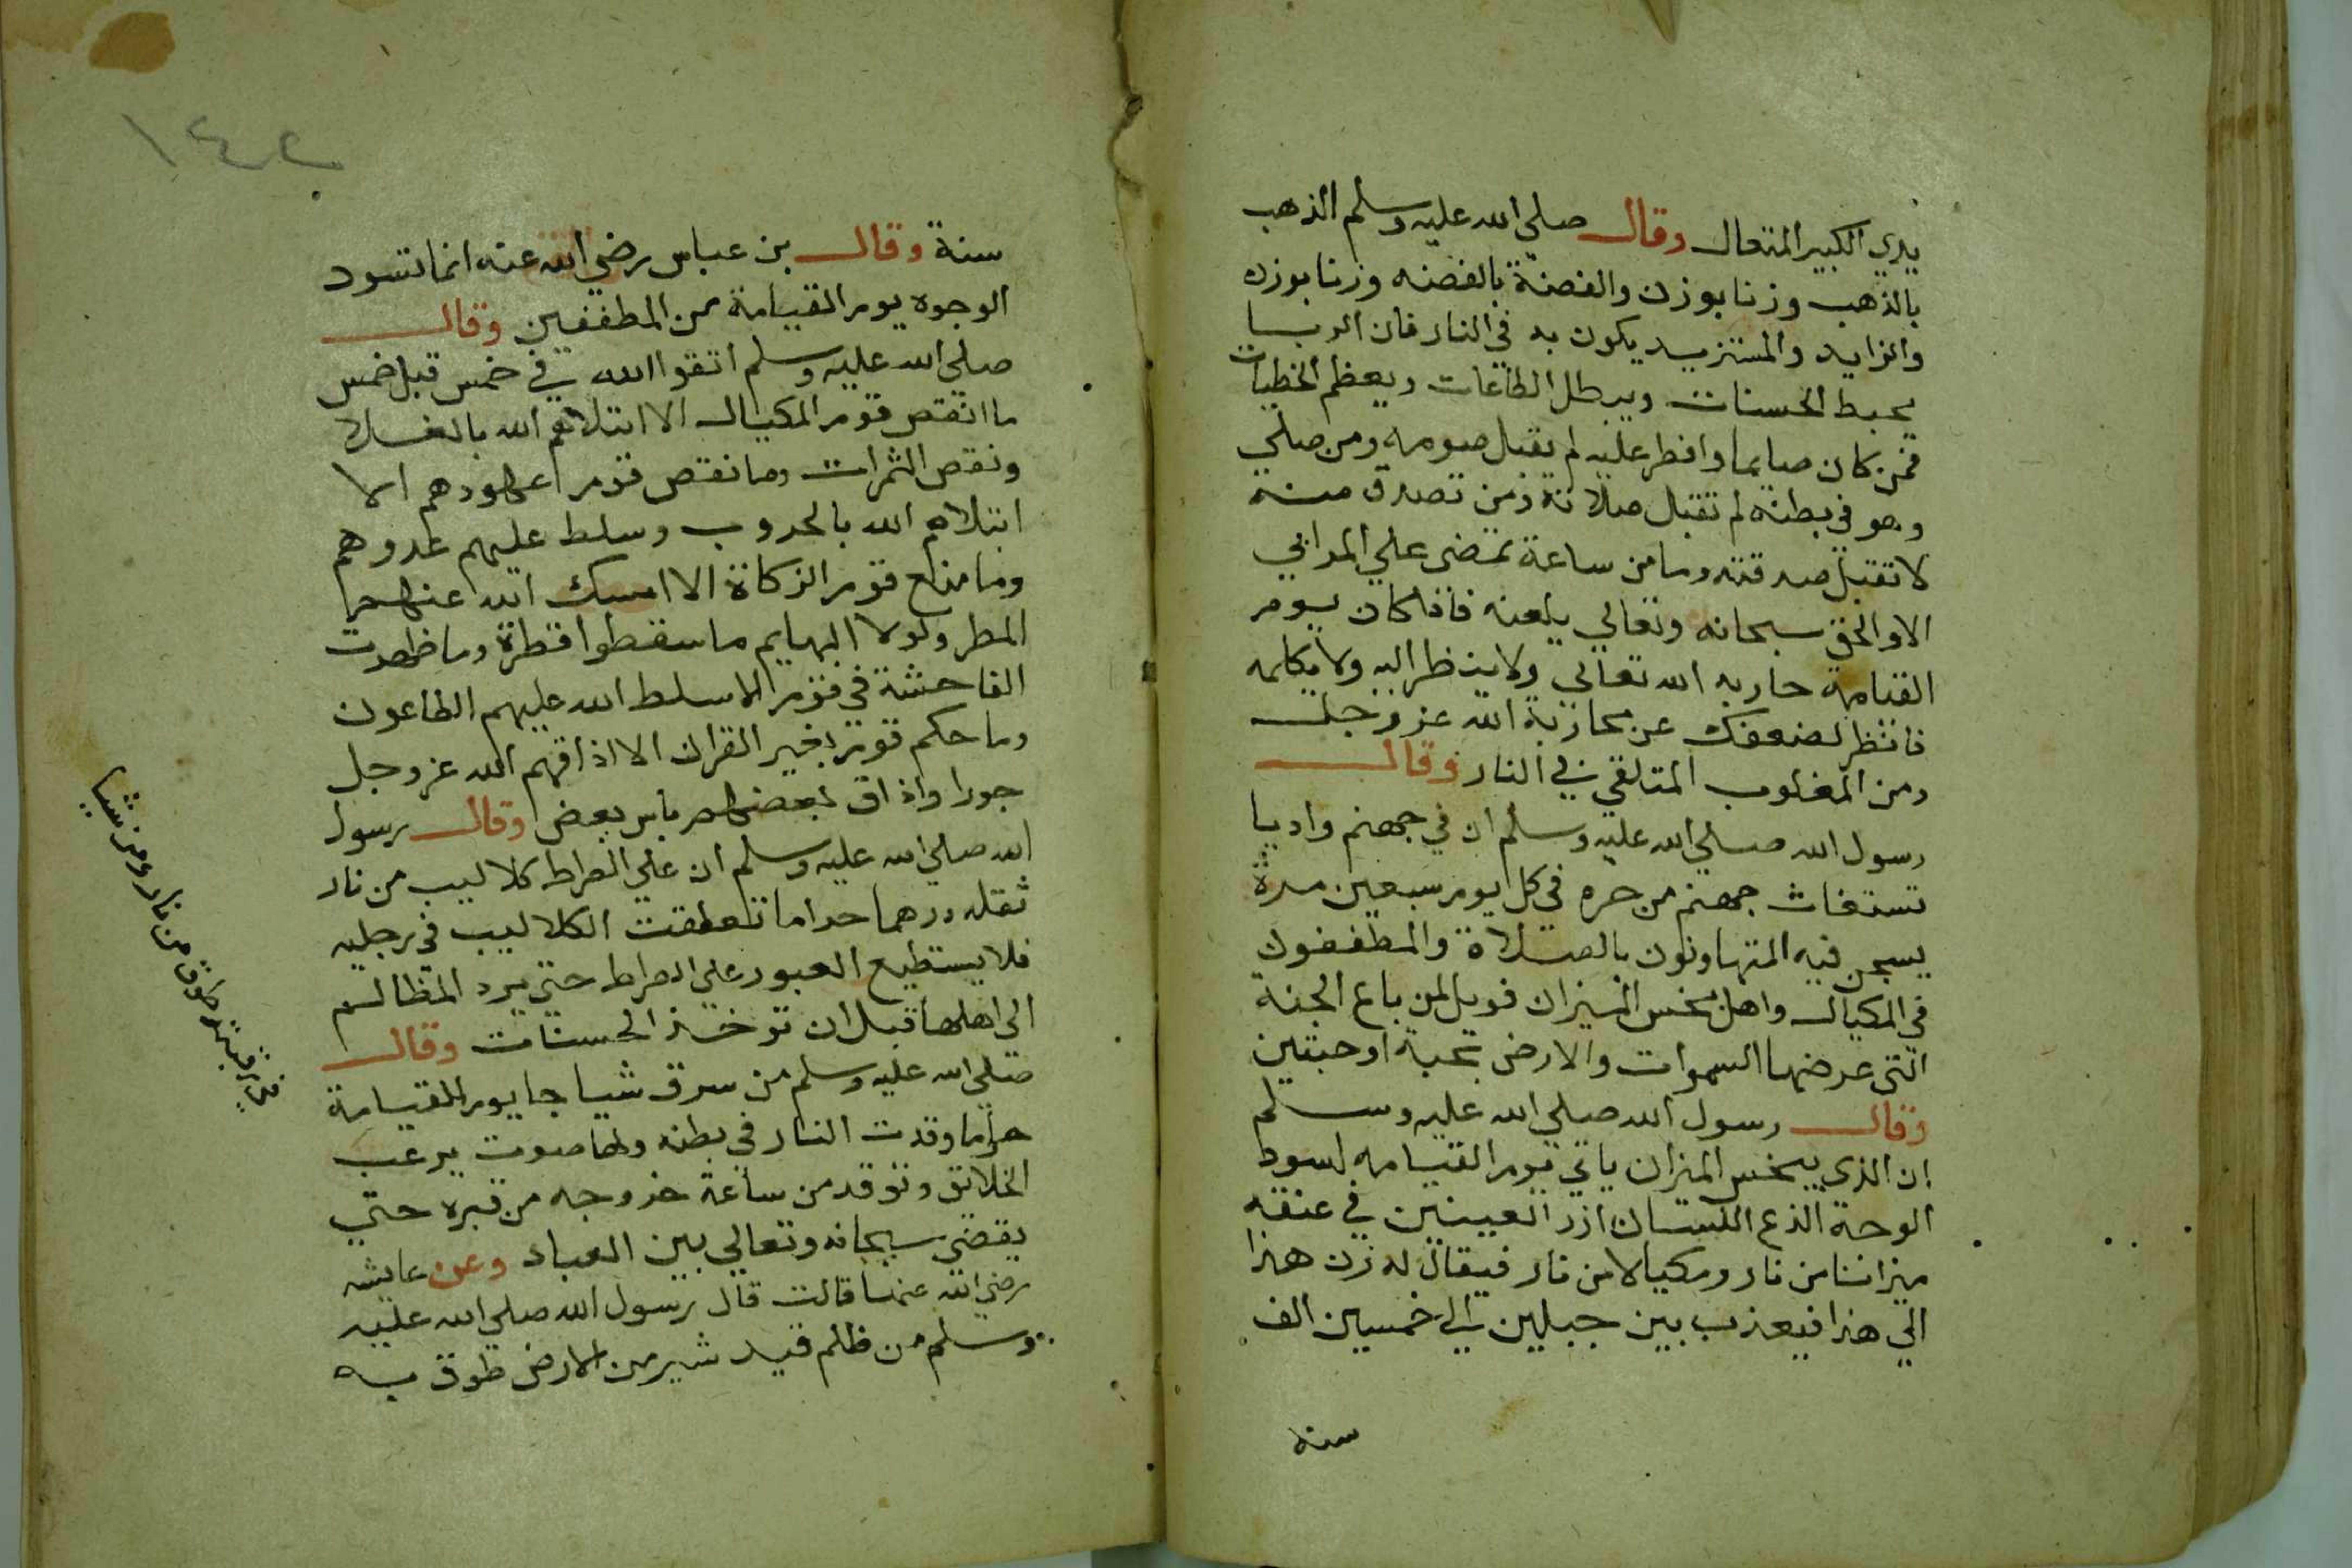 يدي الكبير المتعال وقال صلي الله عليه وسلم الذهب
بالذهب وزنا بوزن والفضة بالفضه وزنا بوزن
والزايد والمستزيد يكون به في النار فان الربا
يحبط الحسنات ويبطل الطاعات ويعظم الخطيات
فمن كان صايما وافطر عليه لم يقبل صومه ومن صلي
وهو في بطنه لم تقبل صلاته ومن تصدق منه
لا تقبل صدقته وما من ساعة تمضي علي المرابي
الا والحق سبحانه وتعالي يلعنه فاذا كان يوم
القيامة حاربه الله تعالي ولا ينظر اليه ولا يكلمه
فانظر لضعفك عن محاربة الله عز وجل
ومن المغلوب المتلقي في النار وقال
رسول الله صلي الله عليه وسلم ان في جهنم واديا
تستغاث جهنم من حره في كل يوم سبعين مرة
يسجن فيه المتهاونون بالصلاة والمطففون
في المكيال واهل بخس الميزان فويل لمن باع الجنة
التي عرضها السموات والارض بحبة او حبتين
وقال رسول الله صلي الله عليه وسلم
ان الذي يبخس الميزان ياتي يوم القيامه اسود
الوجة الذع اللسان ازر العينين في عنقه
ميزانا من نار ومكيالا من نار فيقال له زن هذا
الي هذا فيعذب بين جبلين الي خمسين الف
سنه
١٤٢
سنة وقال بن عباس رضي الله عنه انما تسود
الوجوه يوم القيامة من المطففين وقال
صلي الله عليه وسلم اتقوا الله في خمس قبل خمس
ما انقص قوم المكيال الا ابتلاهم الله بالغلا
ونقص الثمرات وما نقص قوم اعهودهم الا
ابتلاهم الله بالحروب وسلط عليهم عدوهم
وما منع قوم الزكاة الا امسك الله عنهم
المطر ولولا البهايم ما سقطوا قطرة وما ظهرت
الفاحشة في قوم الا سلط الله عليهم الطاعون
وما حكم قوم بغير القران الا اذاقهم الله عز وجل
جورا واذاق بعضهم باس بعض وقال رسول
الله صلي الله عليه وسلم ان علي الصراط كلاليب من نار
ثقله درهما حراما تعلقت الكلاليب في رجليه
فلا يستطيع العبور علي الصراط حتي يرد المظالم
الي اهلها قبل ان توخذ الحسنات وقال
صلي الله عليه وسلم من سرق شيا جا يوم القيامة
حراما وقدت النار في بطنه ولها صوت يرعب
الخلائق وتوقد من ساعة خروجه من قبره حتي
يقضي سبحانه وتعالي بين العباد وعن عايشه
رضي الله عنها قالت قال رسول الله صلي الله عليه
وسلم من ظلم قيد شبر من الارض طوق به
في رقبته طوق من نار ومن شيا